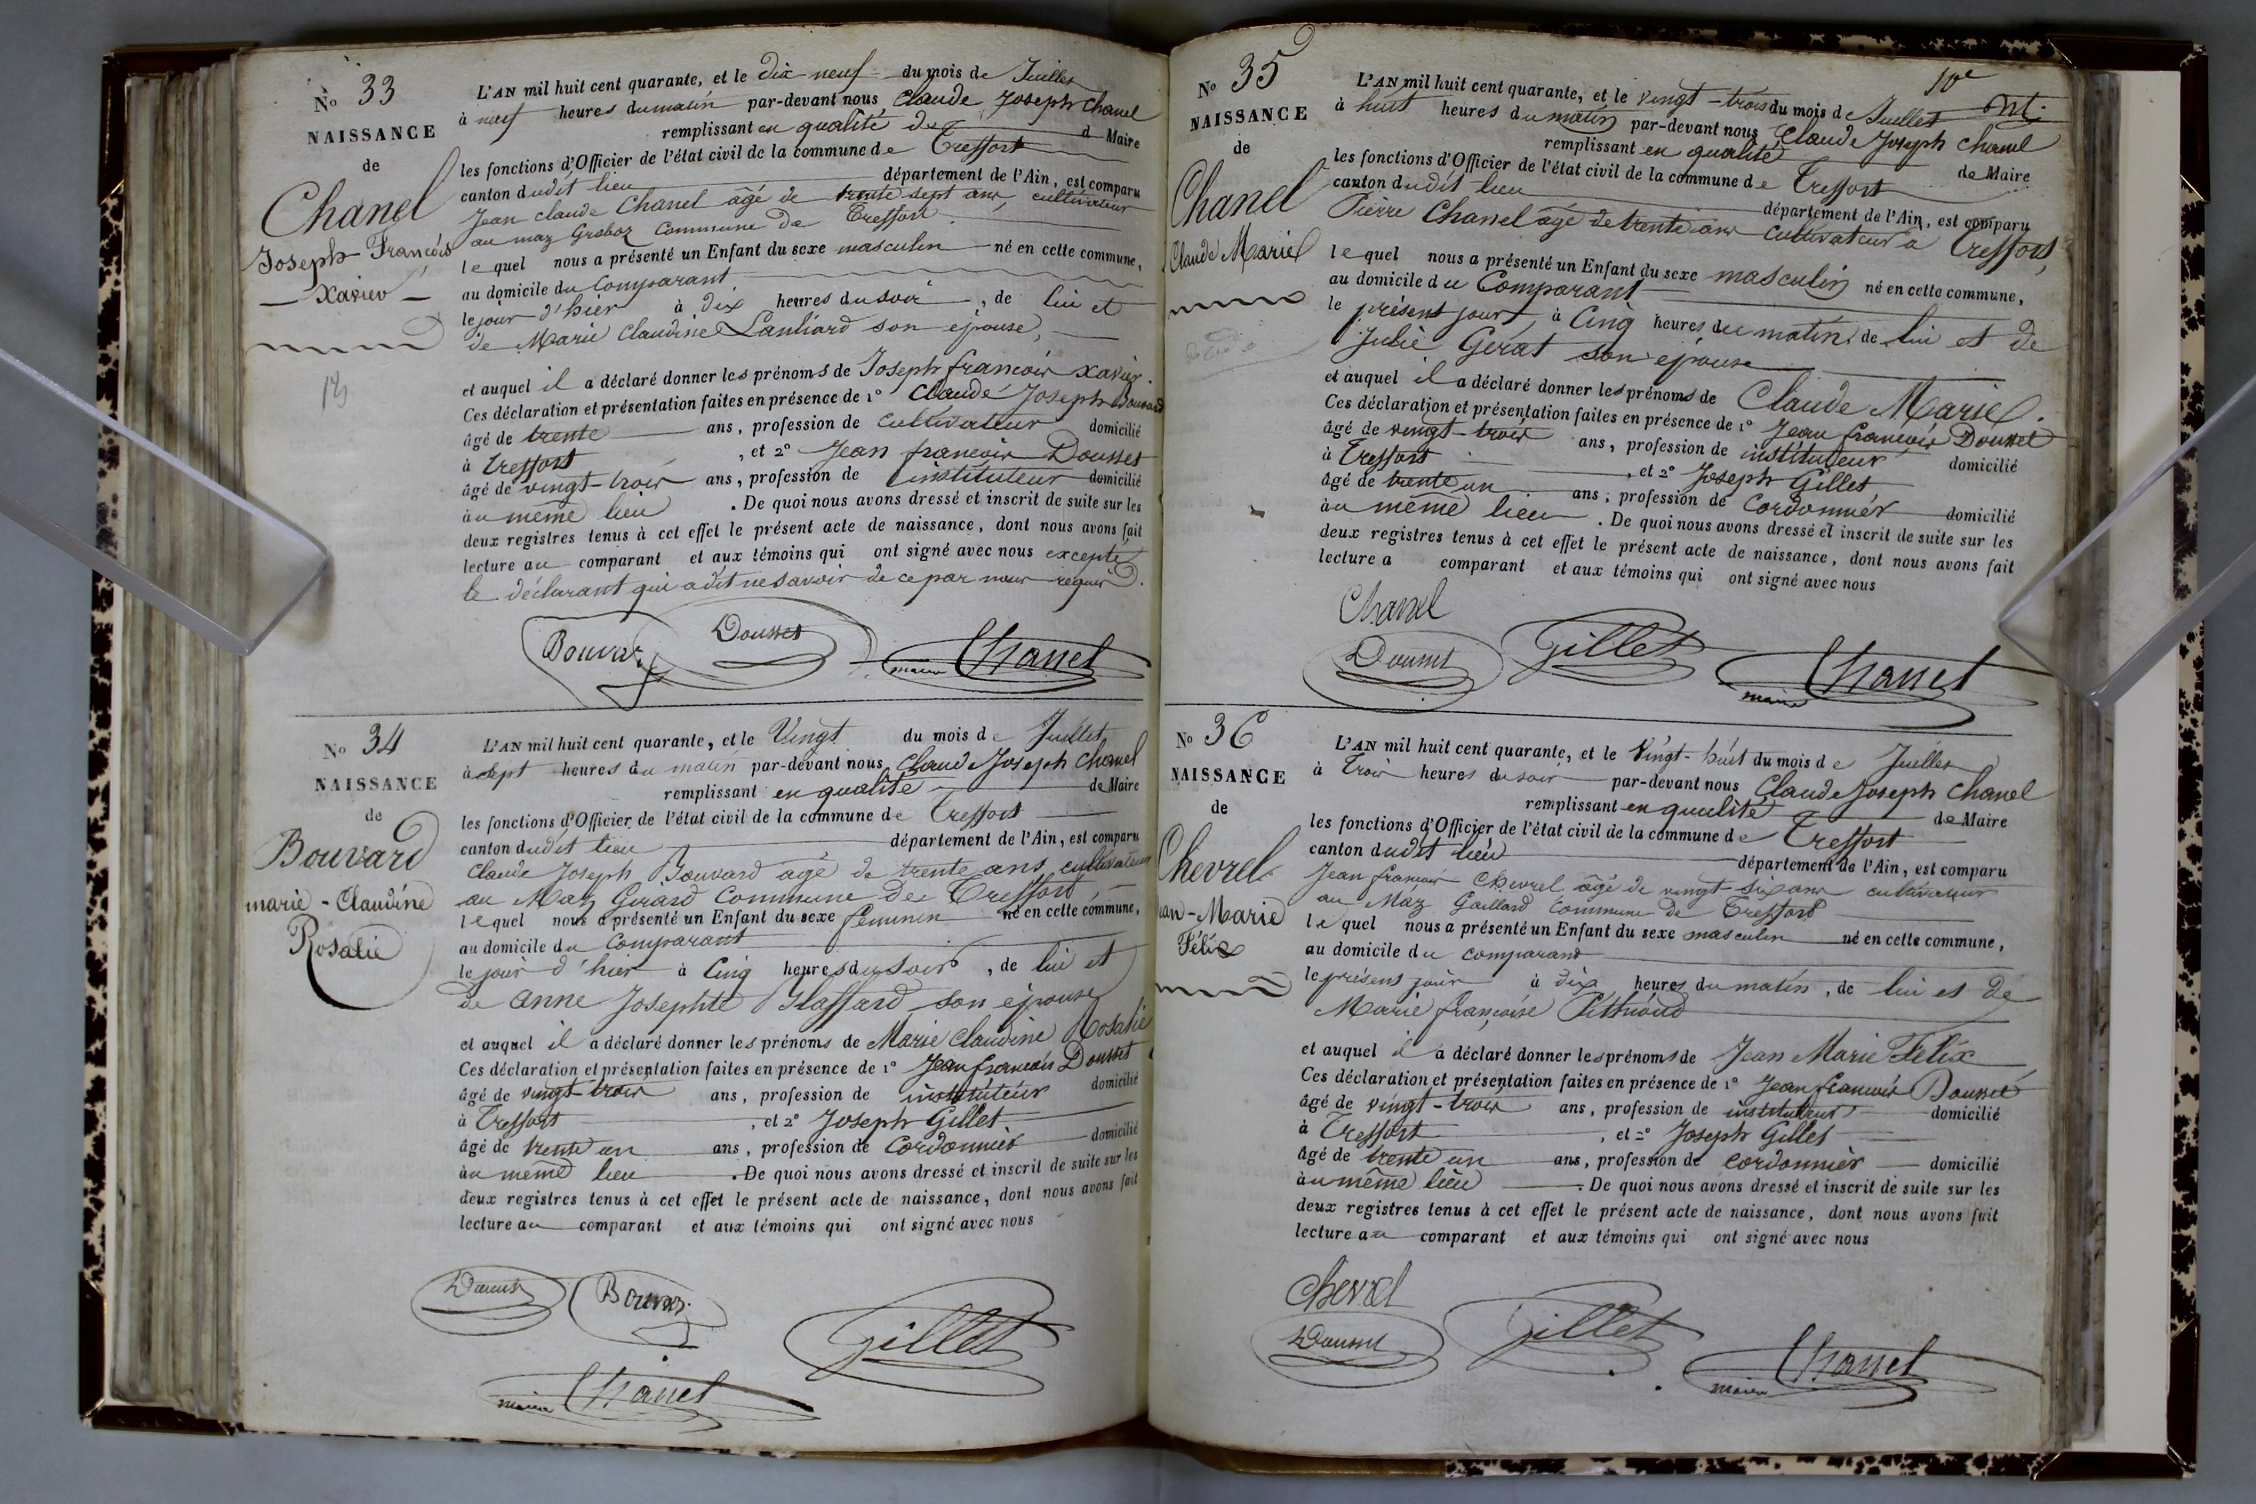 N.° 33
NAISSANCE
de
Chanel
Joseph-François
— Xavier —
L'AN mil huit cent quarante, et le dix neuf du mois de Juillet
à neuf heures du matin par-devant nous Claude Joseph Chanel
remplissant en qualité de Maire
les fonctions d'Officier de l'état civil de la commune de Treffort
canton dudit lieu département de l'Ain, est comparu
Jean Claude Chanel âgé de trente sept ans, cultivateur
au maz Commune de Treffort
lequel nous a présenté un Enfant du sexe masculin né en cette commune,
au domicile du Comparant
le jour d'hier à dix heures du soir, de lui et
de Marie Claudine son épouse,
et auquel il a déclaré donner les prénoms de Joseph françois xavier.
Ces déclaration et présentation faites en présence de 1° Claude Joseph Bouvard
âgé de trente ans, profession de cultivateur domicilié
à Treffort, et 2° Jean françois Dousset
âgé de vingt-trois ans, profession de instituteur domicilié
au même lieu. De quoi nous avons dressé et inscrit de suite sur les
deux registres tenus à cet effet le présent acte de naissance, dont nous avons fait
lecture au comparant et aux témoins qui ont signé avec nous excepté
le déclarant qui a dit ne savoir de ce par nous requis.
Bouvar Dousset maire Chanel
N.° 34
NAISSANCE
de
Bouvard
marie-Claudine
Rosalie
L'AN mil huit cent quarante, et le Vingt du mois de Juillet
à sept heures du matin par-devant nous Claude Joseph Chanel
remplissant en qualité de Maire
les fonctions d'Officier de l'état civil de la commune de Treffort
canton dudit lieu département de l'Ain, est comparu
Claude Joseph Bouvard âgé de trente ans, cultivateur
au Maz Girard Commune de Treffort,
lequel nous a présenté un Enfant du sexe féminin né en cette commune,
au domicile du Comparant
le jour d'hier à Cinq heures du soir, de lui et
de anne Josephte son épouse
et auquel il a déclaré donner les prénoms de Marie Claudine Rosalie
Ces déclaration et présentation faites en présence de 1° Jean françois Dousset
âgé de vingt-trois ans, profession de instituteur domicilié
à Treffort, et 2° Joseph Gillet
âgé de trente un ans, profession de Cordonnier domicilié
au même lieu. De quoi nous avons dressé et inscrit de suite sur les
deux registres tenus à cet effet le présent acte de naissance, dont nous avons fait
lecture au comparant et aux témoins qui ont signé avec nous
Dousset Bouvar Gillet
maire Chanel
10e
N.° 35
NAISSANCE
de
Chanel
Claude Marie
L'AN mil huit cent quarante, et le vingt-trois du mois de Juillet
à huit heures du matin par-devant nous Claude Joseph Chanel
remplissant en qualité de Maire
les fonctions d'Officier de l'état civil de la commune de Treffort
canton dudit lieu département de l'Ain, est comparu
Pierre Chanel âgé de trente ans cultivateur à Treffort,
lequel nous a présenté un Enfant du sexe masculin né en cette commune,
au domicile du Comparant
le présent jour, à Cinq heures du matin, de lui et de
Julie Gerat son épouse
et auquel il a déclaré donner les prénoms de Claude Marie.
Ces déclaration et présentation faites en présence de 1° Jean françois Dousset
âgé de vingt-trois ans, profession de instituteur domicilié
à Treffort, et 2° Joseph Gillet
âgé de trente un ans, profession de Cordonnier domicilié
au même lieu. De quoi nous avons dressé et inscrit de suite sur les
deux registres tenus à cet effet le présent acte de naissance, dont nous avons fait
lecture a comparant et aux témoins qui ont signé avec nous
Chanel
Dousset Gillet maire Chanel
N.° 36
NAISSANCE
de
Chevrel
ean-Marie
Félix
L'AN mil huit cent quarante, et le vingt-huit du mois de Juillet
à trois heures du soir par-devant nous Claude Joseph Chanel
remplissant en qualité de Maire
les fonctions d'Officier de l'état civil de la commune de Treffort
canton dudit lieu département de l'Ain, est comparu
Jean françois Chevrel âgé de vingt-six ans cultivateur
au Maz Gaillard Commune de Treffort
lequel nous a présenté un Enfant du sexe masculin né en cette commune,
au domicile du comparant
le présent jour à dix heures du matin, de lui et de
Marie françoise
et auquel il a déclaré donner les prénoms de Jean Marie Félix
Ces déclaration et présentation faites en présence de 1° Jean françois Dousset
âgé de vingt-trois ans, profession de instituteur domicilié
à Treffort, et 2° Joseph Gillet
âgé de trente un ans, profession de cordonnier domicilié
au même lieu. De quoi nous avons dressé et inscrit de suite sur les
deux registres tenus à cet effet le présent acte de naissance, dont nous avons fait
lecture au comparant et aux témoins qui ont signé avec nous
Chevrel
Dousset Gillet maire Chanel